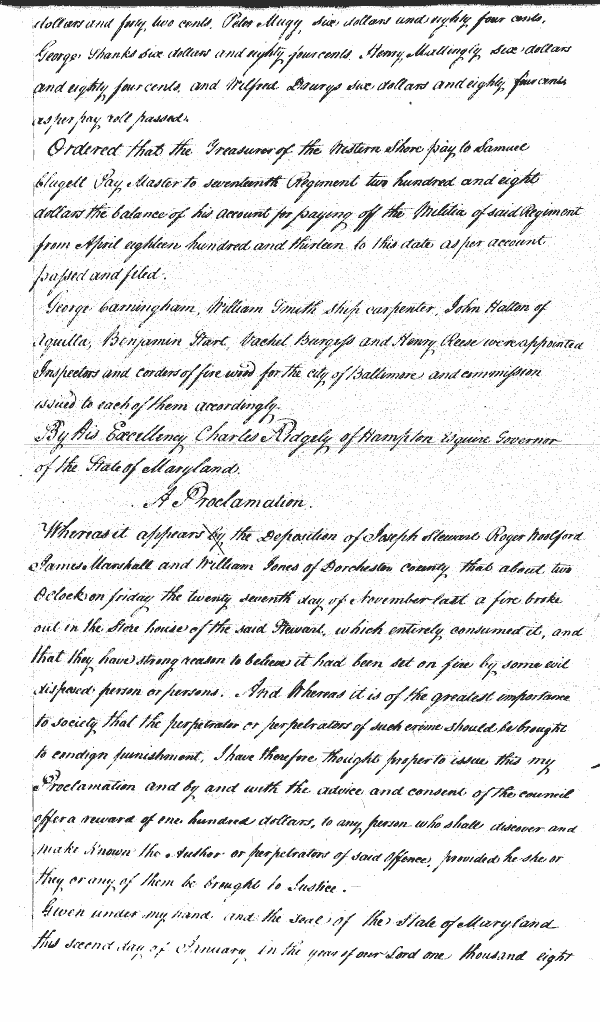 dollars and forty two cents, Peter Mugg, six dollars and eighty four cents,
George Thanks six dollars and eighty four cents, Henry Mattingly six dollars
and eighty four cents, and Wilfred Daurgs six dollars and eighty four cents
as per pay roll passed.
Ordered that the Treasurer of the Western Shore pay to Samuel
Clugett Pay Master to seventeenth Regiment two hundred and eight
dollars the balance of his account for paying off the Militia of said Regiment
from April eighteen hundred and thirteen to this date as per account
passed and filed.
George Carningham, William Smith ship carpenter, John Hatton of
Aquilla, Benjamin Start, Vachel Burgess and Henry Reese were appointed
Inspectors and corders of fire wood for the city of Baltimore and commission
issued to each of them accordingly.
By His Excellency Charles Ridgely of Hampton Esquire Governor
of the State of Maryland.
A Proclamation.
Whereas it appears by the Deposition of Joseph Stewart Roger Woolford
James Marshall and William Jones of Dorchester county that about two
Oclock on friday the twenty seventh day of November last a fire broke
out in the Store house of the said Stewart, which entirely consumed it, and
that they have strong reason to believe it had been set on fire by some evil
disposed person or persons. And Whereas it is of the greatest importance
to society that the perpetrator or perpetrators of such crime should be brought
to condign punishment, I have therefore thought proper to issue this my
Proclamation and by and with the advice and consent of the council
offer a reward of one hundred dollars, to any person who shall discover and
make known the Author or perpetrators of said Offence, provided he she or
they or any of them be brought to Justice.
Given under my hand and the seal of the State of Maryland
this second day of January in the year of our Lord one thousand eight